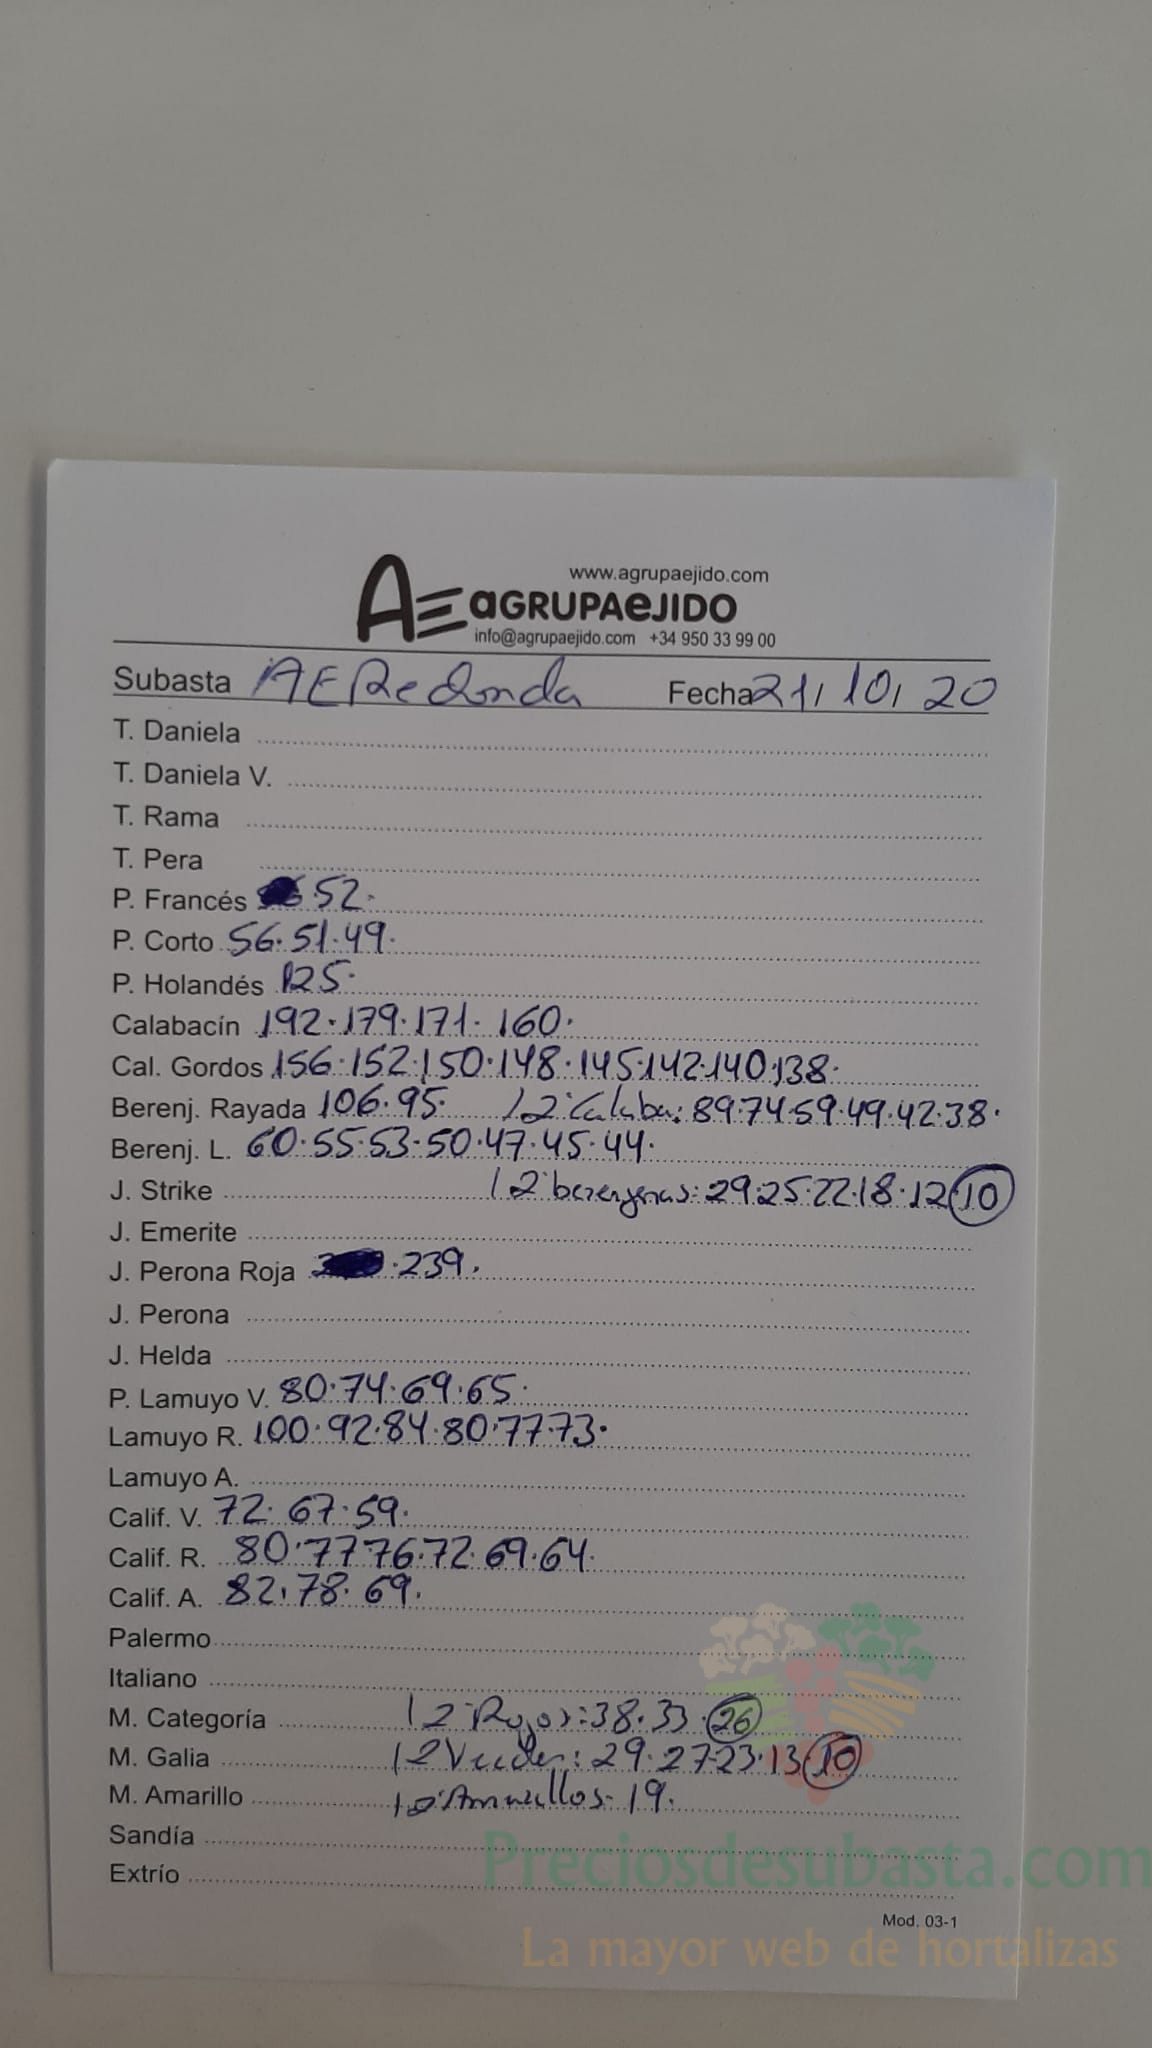 www.agrupaejido.com
AE aGRUPAeJIDO
info@agrupaejido.com +34 950 33 99 00
Subasta AE Redonda Fecha 21/10/20
T. Daniela
T. Daniela V.
T. Rama
T. Pera
P. Francés 52.
P. Corto 56.51.49.
P. Holandés 125.
Calabacín 192.179.171.160.
Cal. Gordos 156.152.150.148.145.142.140.138.
Berenj. Rayada 106.95. 12ª Calaba: 89.74.59.49.42.38.
Berenj. L. 60.55.53.50.47.45.44.
J. Strike 12ª berenjenas: 29.25.22.18.12.10
J. Emerite
J. Perona Roja .239.
J. Perona
J. Helda
P. Lamuyo V. 80.74.69.65.
Lamuyo R. 100.92.84.80.77.73.
Lamuyo A.
Calif. V. 72.67.59.
Calif. R. 80.77.76.72.69.64.
Calif. A. 82.78.69.
Palermo
Italiano
M. Categoría 12ª Rojos: 38.33.26
M. Galia 12 Verdes: 29.27.23.13.10
M. Amarillo Amarillos. 19.
Sandía
Extrío
Preciosdesubasta.com
Mod. 03-1
La mayor web de hortalizas